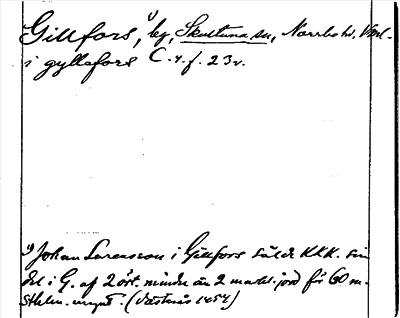 Gillfors,¹⁾ by, Skultuna sn, Norrbo hd, Vml.
i gyllefors C. 4. f. 23v.
¹⁾ Johan Larensson i Gillfors sålde KKK. sin
del i G. af 2 ört. mindre än 2 markl. jord för 60 m.
Sthlm. mynt. (Västerås 1454)